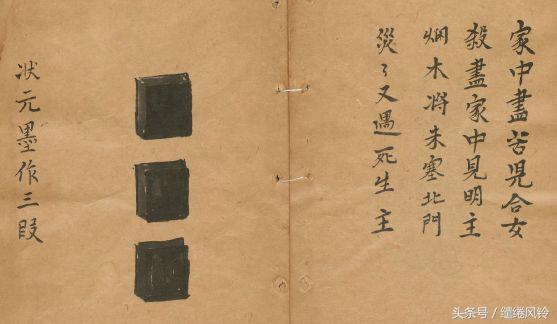 家中盡苦児合女
殺盡家中見明主
焖木將朱塞北門
災々又遇死生主
状元墨作三段
头条号 / 缱绻风铃